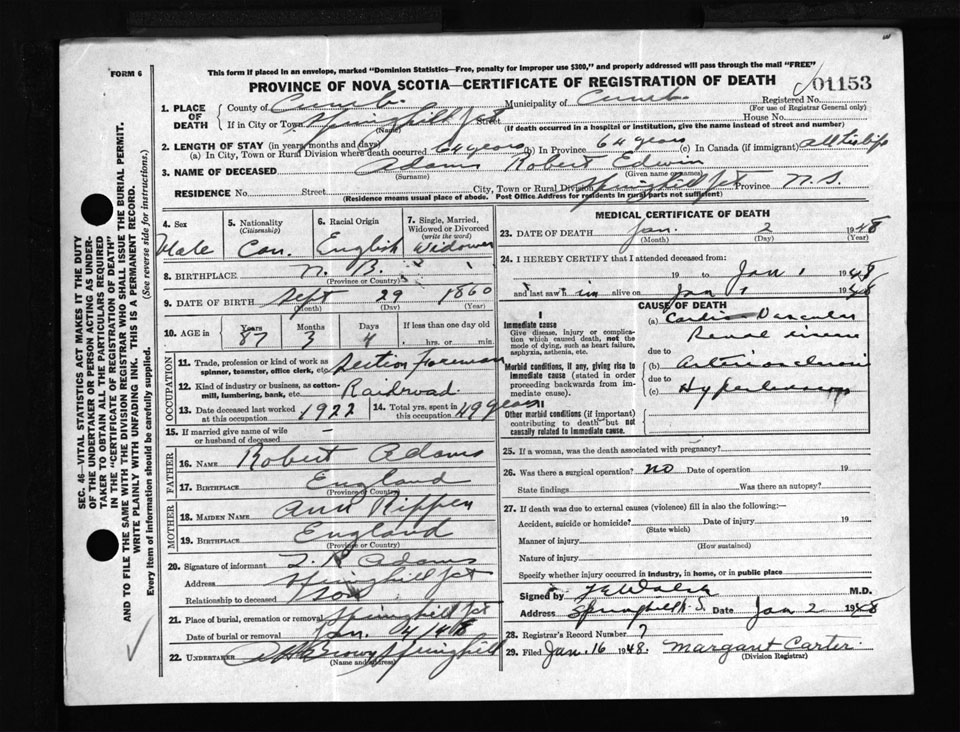 FORM 6
This form if placed in an envelope, marked "Dominion Statistics—Free, penalty for improper use $300," and properly addressed will pass through the mail "FREE"
PROVINCE OF NOVA SCOTIA—CERTIFICATE OF REGISTRATION OF DEATH
01153
1. PLACE OF DEATH
County of Cumb. Municipality of Cumb. Registered No.
(For use of Registrar General only)
If in City or Town Springhill Jct Street House No.
(Name) (If death occurred in a hospital or institution, give the name instead of street and number)
2. LENGTH OF STAY (in years, months and days)
(a) In City, Town or Rural Division where death occurred 64 years (b) In Province 64 years (c) In Canada (if immigrant) all his life
3. NAME OF DECEASED Adams Robert Edwin
(Surname) (Given name or names)
RESIDENCE No. Street City, Town or Rural Division Springhill Jct Province N.S.
(Residence means usual place of abode. Post Office Address for residents in rural parts not sufficient)
4. Sex Male
5. Nationality (Citizenship) Can.
6. Racial Origin English
7. Single, Married, Widowed or Divorced (write the word) Widower
8. BIRTHPLACE N. B.
(Province or Country)
9. DATE OF BIRTH Sept 29 1860
(Month) (Day) (Year)
10. AGE in Years 87 Months 3 Days 4 If less than one day old hrs. or min.
OCCUPATION
11. Trade, profession or kind of work as spinner, teamster, office clerk, etc. Section Foreman
12. Kind of industry or business, as cotton-mill, lumbering, bank, etc. Railroad
13. Date deceased last worked at this occupation 1922
14. Total yrs. spent in this occupation 49 years
15. If married give name of wife or husband of deceased —
FATHER
16. NAME Robert Adams
17. BIRTHPLACE England
(Province or Country)
MOTHER
18. MAIDEN NAME Ann Rippen
19. BIRTHPLACE England
(Province or Country)
20. Signature of informant Adams
Address Springhill Jct
Relationship to deceased Son
21. Place of burial, cremation or removal Springhill Jct
Date of burial or removal Jan. 4/48
22. UNDERTAKER Brown Springhill
(Name and address)
MEDICAL CERTIFICATE OF DEATH
23. DATE OF DEATH Jan. 2 1948
(Month) (Day) (Year)
24. I HEREBY CERTIFY that I attended deceased from:
19 to Jan 1 1948
and last saw him alive on Jan 1 1948
CAUSE OF DEATH
I
Immediate cause
Give disease, injury or complication which caused death, not the mode of dying, such as heart failure, asphyxia, asthenia, etc.
(a) Cardio Vascular
Renal
due to
Morbid conditions, if any, giving rise to immediate cause (stated in order proceeding backwards from immediate cause).
(b)
due to
(c)
II
Other morbid conditions (if important) contributing to death but not causally related to immediate cause.
25. If a woman, was the death associated with pregnancy?
26. Was there a surgical operation? no Date of operation 19
State findings Was there an autopsy?
27. If death was due to external causes (violence) fill in also the following:—
Accident, suicide or homicide? Date of injury 19
(State which)
Manner of injury
(How sustained)
Nature of injury
Specify whether injury occurred in industry, in home, or in public place
Signed by Walsh M.D.
Address Springhill N.S. Date Jan 2 1948
28. Registrar's Record Number 7
29. Filed Jan. 16 1948. Margaret Carter
(Division Registrar)
SEC. 46—VITAL STATISTICS ACT MAKES IT THE DUTY OF THE UNDERTAKER OR PERSON ACTING AS UNDERTAKER TO OBTAIN ALL THE PARTICULARS REQUIRED IN THE "CERTIFICATE OF REGISTRATION OF DEATH" AND TO FILE THE SAME WITH THE DIVISION REGISTRAR WHO SHALL ISSUE THE BURIAL PERMIT.
WRITE PLAINLY WITH UNFADING INK. THIS IS A PERMANENT RECORD.
Every item of information should be carefully supplied. (See reverse side for instructions.)